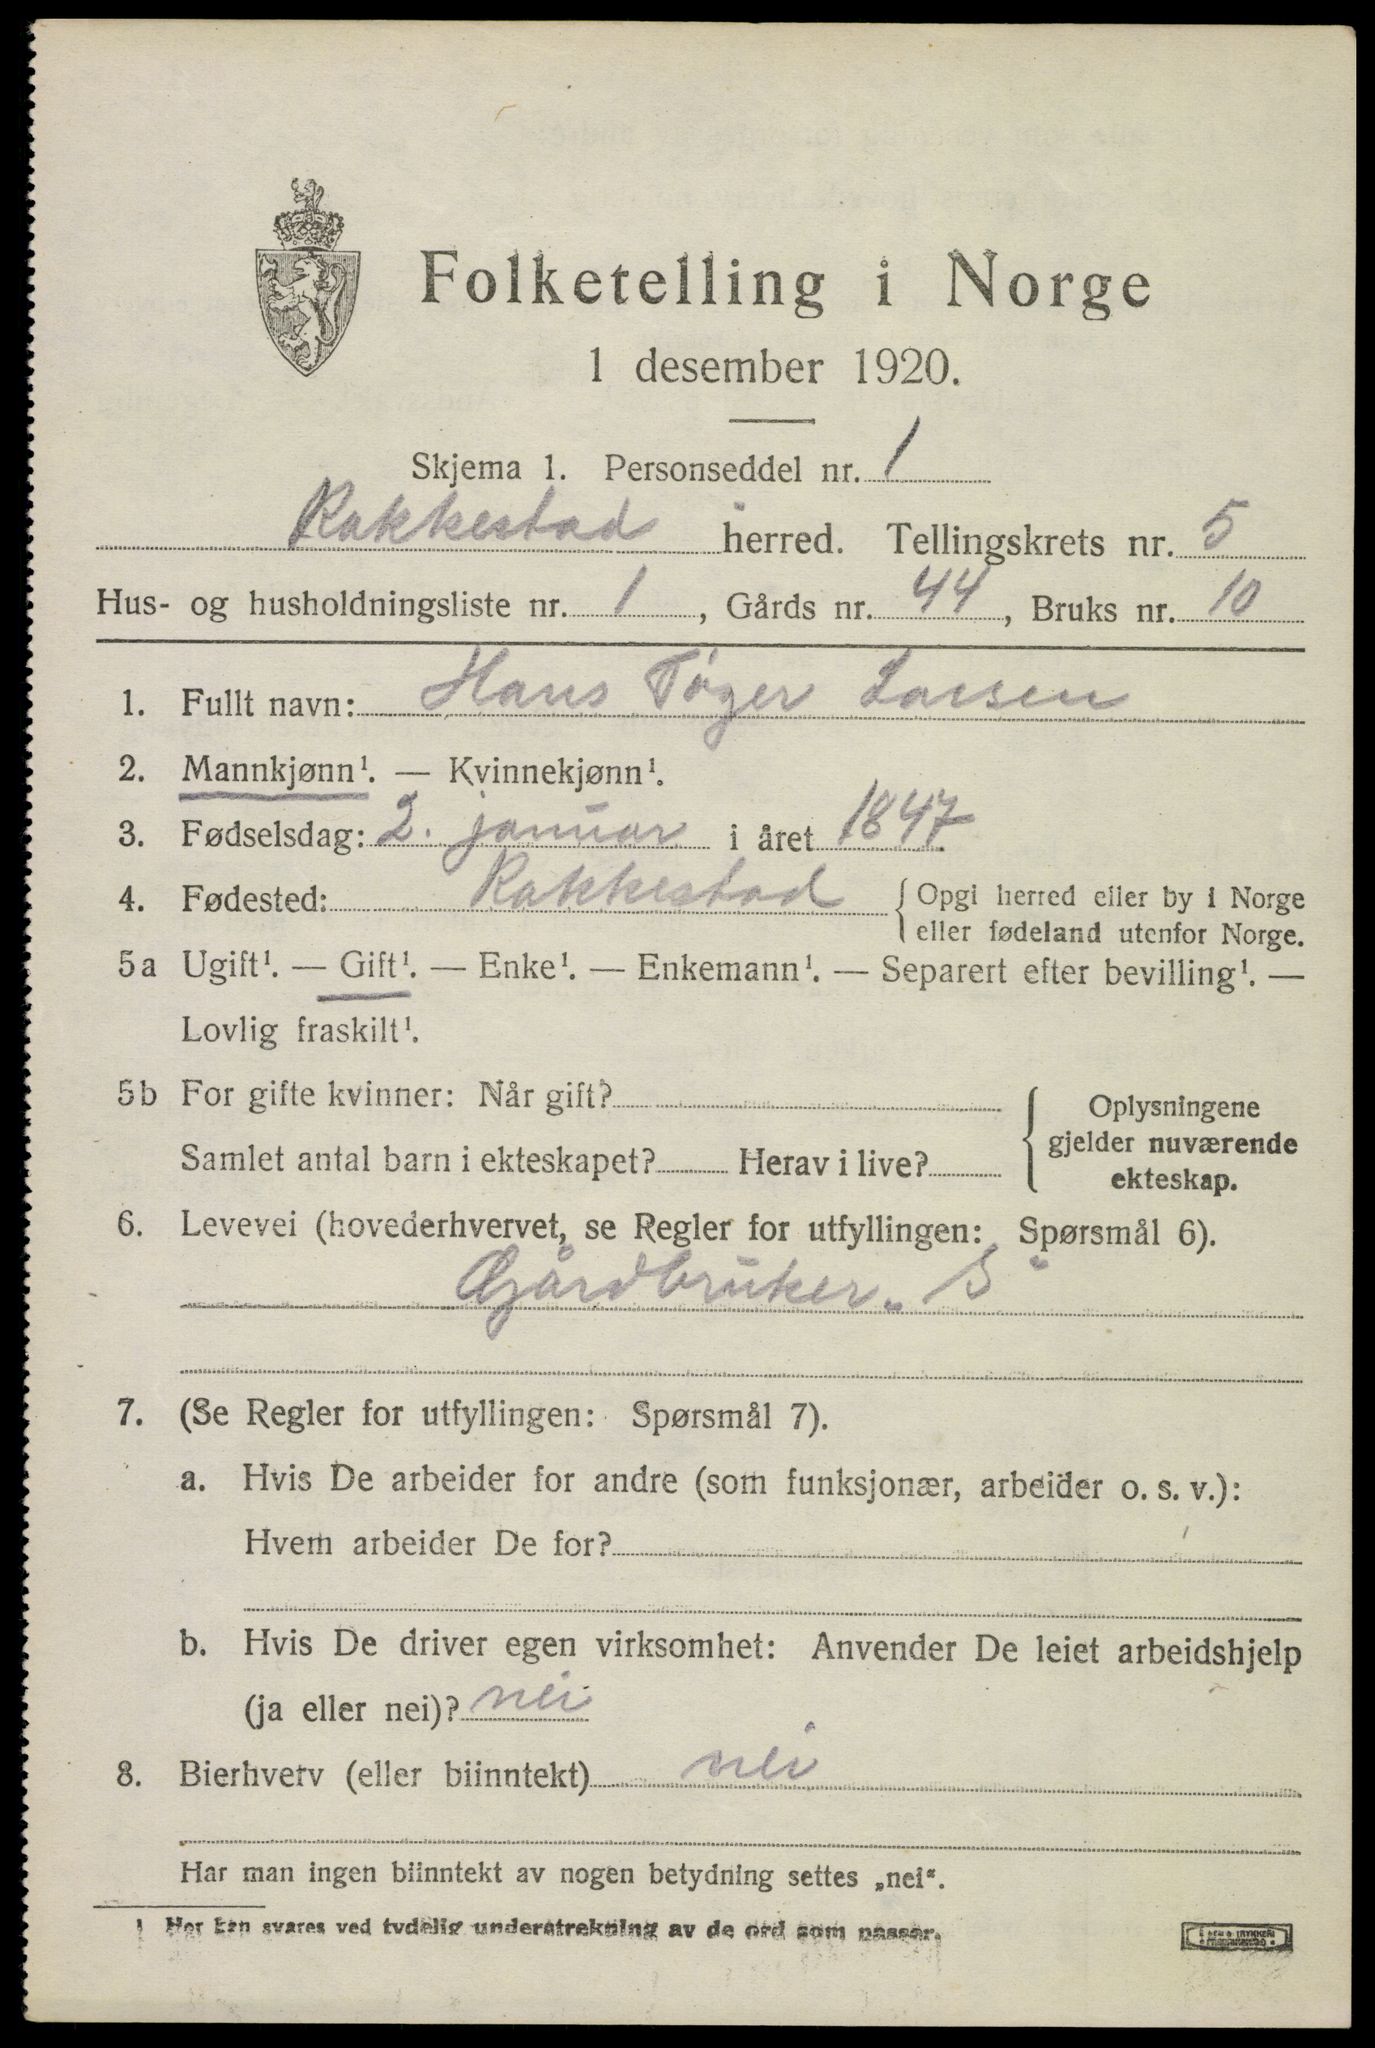 Folketelling i Norge
1 desember 1920.
Skjema 1. Personseddel nr. 1
Rakkestad herred. Tellingskrets nr. 5
Hus- og husholdningsliste nr. 1, Gårds nr. 44, Bruks nr. 10
1. Fullt navn: Hans Tøger Larsen
2. Mannkjønn¹. — Kvinnekjønn¹.
3. Fødselsdag: 2. januar i året 1847
4. Fødested: Rakkestad { Opgi herred eller by i Norge
eller fødeland utenfor Norge.
5a Ugift¹. — Gift¹. — Enke¹. — Enkemann¹. — Separert efter bevilling¹. —
Lovlig fraskilt¹.
5b For gifte kvinner: Når gift?
Samlet antal barn i ekteskapet? Herav i live?
Oplysningene
gjelder nuværende
ekteskap.
6. Levevei (hovederhvervet, se Regler for utfyllingen: Spørsmål 6).
Gårdbruker „S“
7. (Se Regler for utfyllingen: Spørsmål 7).
a. Hvis De arbeider for andre (som funksjonær, arbeider o. s. v.):
Hvem arbeider De for?
b. Hvis De driver egen virksomhet: Anvender De leiet arbeidshjelp
(ja eller nei)? nei
8. Bierhverv (eller biinntekt) nei
Har man ingen biinntekt av nogen betydning settes „nei“.
1 Her kan svares ved tydelig understrekning av de ord som passer.